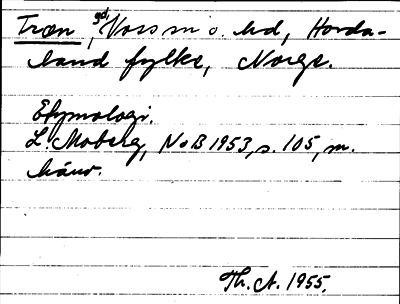 Træn, gd, Voss sn o. hd, Horda-
land fylke, Norge.
Etymologi.
L. Moberg, NoB 1953, s. 105, m.
hänv.
Th. A. 1955.